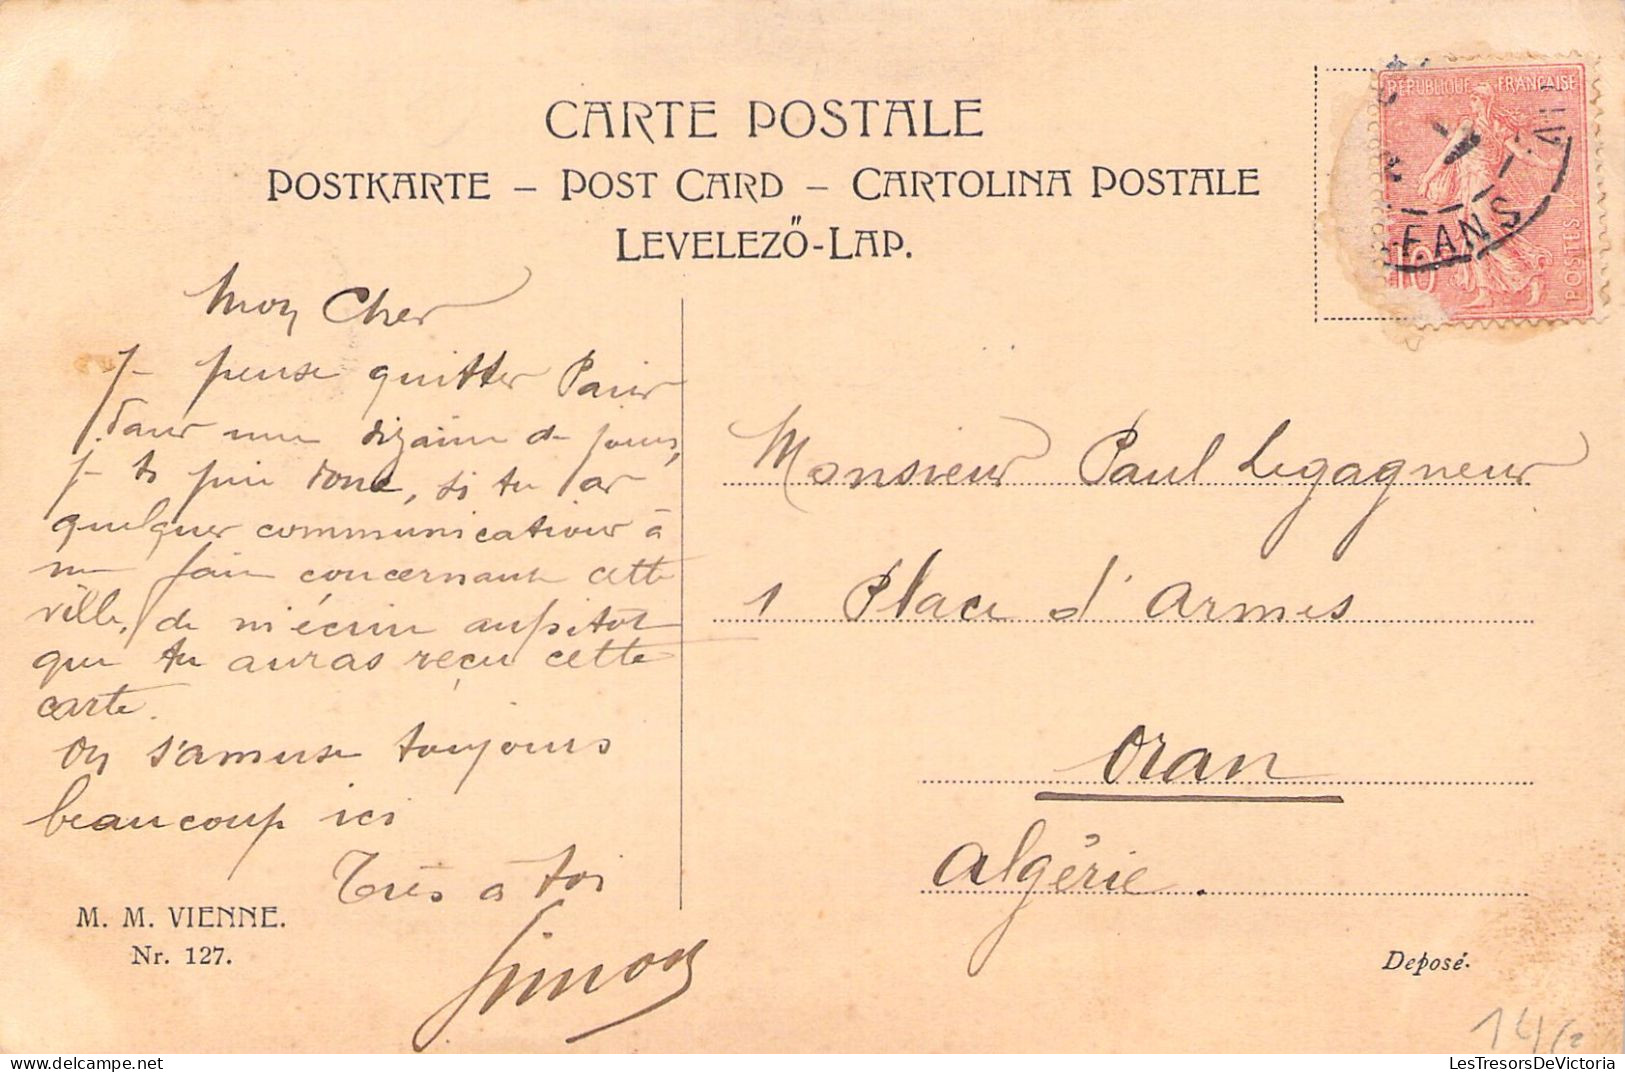 CARTE POSTALE
POSTKARTE – POST CARD – CARTOLINA POSTALE
LEVELEZŐ-LAP.
RÉPUBLIQUE FRANÇAISE
POSTES
10
FANS
Mon Cher
Je pense quitter Paris
dans une dizaine de jours,
je te prie donc, si tu as
quelques communications à
me faire concernant cette
ville, de m'écrire aussitôt
que tu auras reçu cette
carte.
On s'amuse toujours
beaucoup ici
Très à toi
Simon
Monsieur Paul Legagneur
1 Place d'Armes
Oran
Algérie.
M. M. VIENNE.
Nr. 127.
Deposé.
LesTresorsDeVictoria